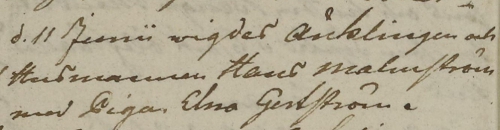 d. 11 Junii wigdes Änklingen och
Husmannen Hans Malmström
med Pigan Elna Gertström.